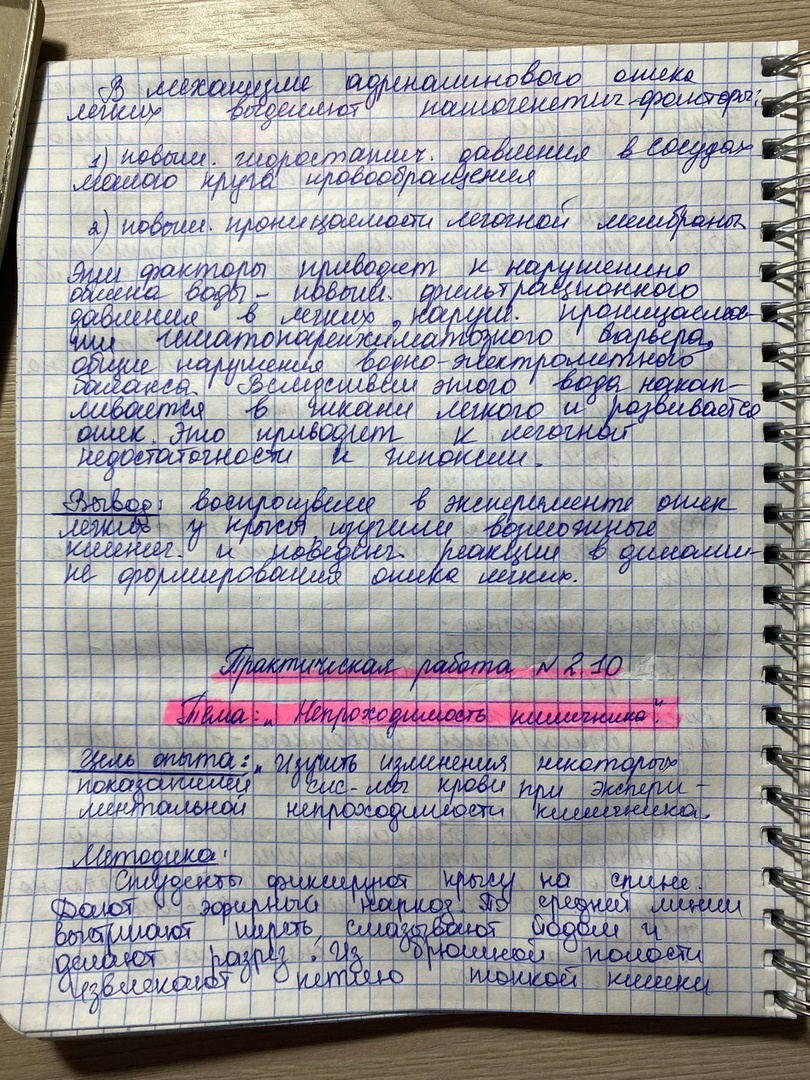 В механизме адреналинового отека
легких выделяют патогенетич. факторы:
1) повыш. гидростатич. давления в сосудах
малого круга кровообращения
2) повыш. проницаемости легочной мембраны
Эти факторы приводят к нарушению
обмена воды – повыш. фильтрационного
давления в легких, наруш. проницаемос-
ти гематопаренхиматозного барьера,
общие нарушения водно-электролитного
баланса. Вследствии этого вода накап-
ливается в ткани легкого и развивается
отек. Это приводит к легочной
недостаточности и гипоксии.
Вывод: воспроизвели в эксперименте отек
легких у крысы, изучили возможные
клинич. и поведенч. реакции в динами-
ке формирования отека легких.
Практическая работа № 2.10
Тема: „Непроходимость кишечника".
Цель опыта: „Изучить изменения некоторых
показателей сис-мы крови при экспери-
ментальной непроходимости кишечника.
Методика:
Студенты фиксируют крысу на спине.
Дают эфирный наркоз. По средней линии
выстригают шерсть смазывают йодом и
делают разрез. Из брюшной полости
извлекают петлю тонкой кишки